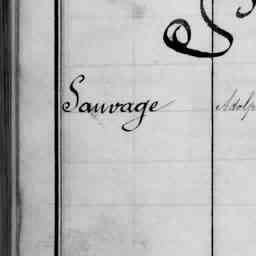 S
Sauvage Adolp